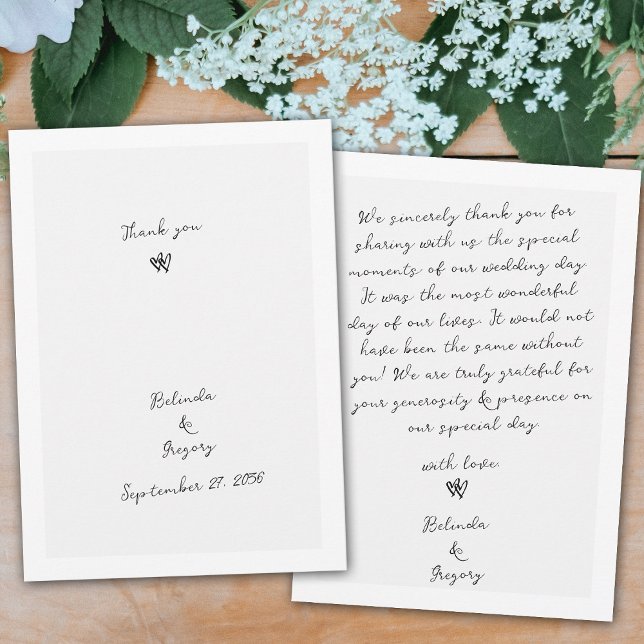 Thank you
Belinda
&
Gregory
September 27, 2036
We sincerely thank you for
sharing with us the special
moments of our wedding day.
It was the most wonderful
day of our lives. It would not
have been the same without
you! We are truly grateful for
your generosity & presence on
our special day.
with love.
Belinda
&
Gregory